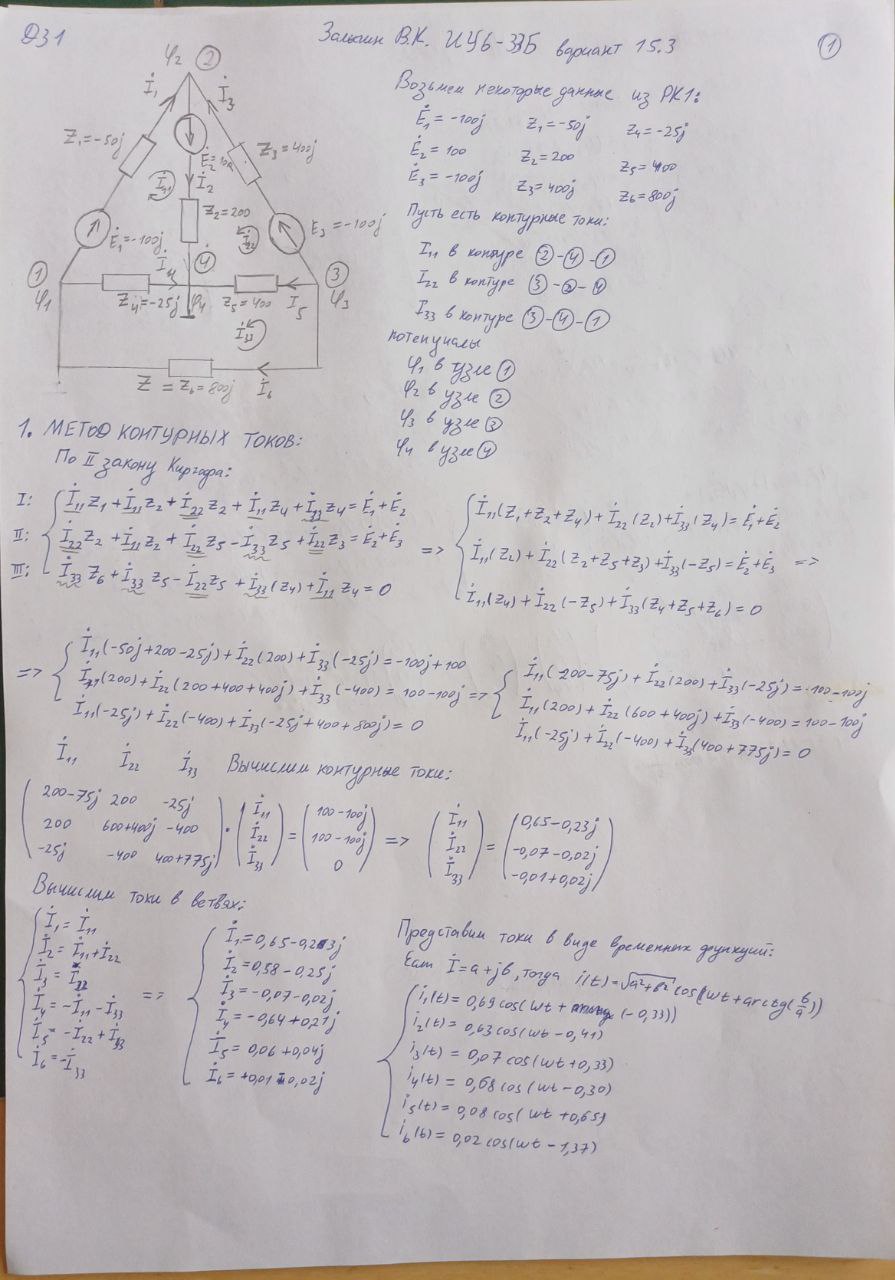 ДЗ1
Залыгин В.К. ИУ6-33Б вариант 15.3
1
φ₂ 2
İ₁ İ₃
Z₁=-50j
Z₃=400j
İ₂
İ₁₁
Z₂=200
İ₂₂
Ė₁=-100j
E₃=-100j
İ₄ 4
1 3
φ₁ φ₄ φ₃
Z₄=-25j Z₅=400 İ₅
İ₃₃
Z = Z₆=800j İ₆
Возьмем некоторые данные из РК1:
Ė₁ = -100j Z₁=-50j Z₄=-25j
Ė₂ = 100 Z₂=200 Z₅=400
Ė₃ = -100j Z₃=400j Z₆=800j
Пусть есть контурные токи:
I₁₁ в контуре 2-4-1
I₂₂ в контуре 3-2-4
I₃₃ в контуре 3-4-1
потенциалы
φ₁ в узле 1
φ₂ в узле 2
φ₃ в узле 3
φ₄ в узле 4
1. МЕТОД КОНТУРНЫХ ТОКОВ:
По II закону Киргофа:
I: İ₁₁Z₁+İ₁₁Z₂+İ₂₂Z₂+İ₁₁Z₄+İ₃₃Z₄=Ė₁+Ė₂
II: İ₂₂Z₂+İ₁₁Z₂+İ₂₂Z₅-İ₃₃Z₅+İ₂₂Z₃=Ė₂+Ė₃ =>
III: İ₃₃Z₆+İ₃₃Z₅-İ₂₂Z₅+İ₃₃(Z₄)+İ₁₁Z₄=0
İ₁₁(Z₁+Z₂+Z₄)+İ₂₂(Z₂)+İ₃₃(Z₄)=Ė₁+Ė₂
İ₁₁(Z₂)+İ₂₂(Z₂+Z₅+Z₃)+İ₃₃(-Z₅)=Ė₂+Ė₃ =>
İ₁₁(Z₄)+İ₂₂(-Z₅)+İ₃₃(Z₄+Z₅+Z₆)=0
İ₁₁(-50j+200-25j)+İ₂₂(200)+İ₃₃(-25j)=-100j+100
=> İ₁₁(200)+İ₂₂(200+400+400j)+İ₃₃(-400)=100-100j =>
İ₁₁(-25j)+İ₂₂(-400)+İ₃₃(-25j+400+800j)=0
İ₁₁(200-75j)+İ₂₂(200)+İ₃₃(-25j)=100-100j
İ₁₁(200)+İ₂₂(600+400j)+İ₃₃(-400)=100-100j
İ₁₁(-25j)+İ₂₂(-400)+İ₃₃(400+775j)=0
İ₁₁ İ₂₂ İ₃₃ Вычислим контурные токи:
200-75j 200 -25j İ₁₁ 100-100j İ₁₁ 0,65-0,23j
200 600+400j -400 · İ₂₂ = 100-100j => İ₂₂ = -0,07-0,02j
-25j -400 400+775j İ₃₃ 0 İ₃₃ -0,01+0,02j
Вычислим токи в ветвях:
İ₁=İ₁₁
İ₂=İ₁₁+İ₂₂
İ₃=İ₂₂
İ₄=-İ₁₁-İ₃₃ =>
İ₅=-İ₂₂+İ₃₃
İ₆=-İ₃₃
İ₁=0,65-0,23j
İ₂=0,58-0,25j
İ₃=-0,07-0,02j
İ₄=-0,64+0,21j
İ₅=0,06+0,04j
İ₆=+0,01-0,02j
Представим токи в виде временных функций:
Если İ=a+jb, тогда i(t)=√a²+b² cos(wt+arctg(b/a))
i₁(t)=0,69 cos(wt+ (-0,33))
i₂(t)=0,63 cos(wt-0,41)
i₃(t)=0,07 cos(wt+0,33)
i₄(t)=0,68 cos(wt-0,30)
i₅(t)=0,08 cos(wt+0,65)
i₆(t)=0,02 cos(wt-1,37)